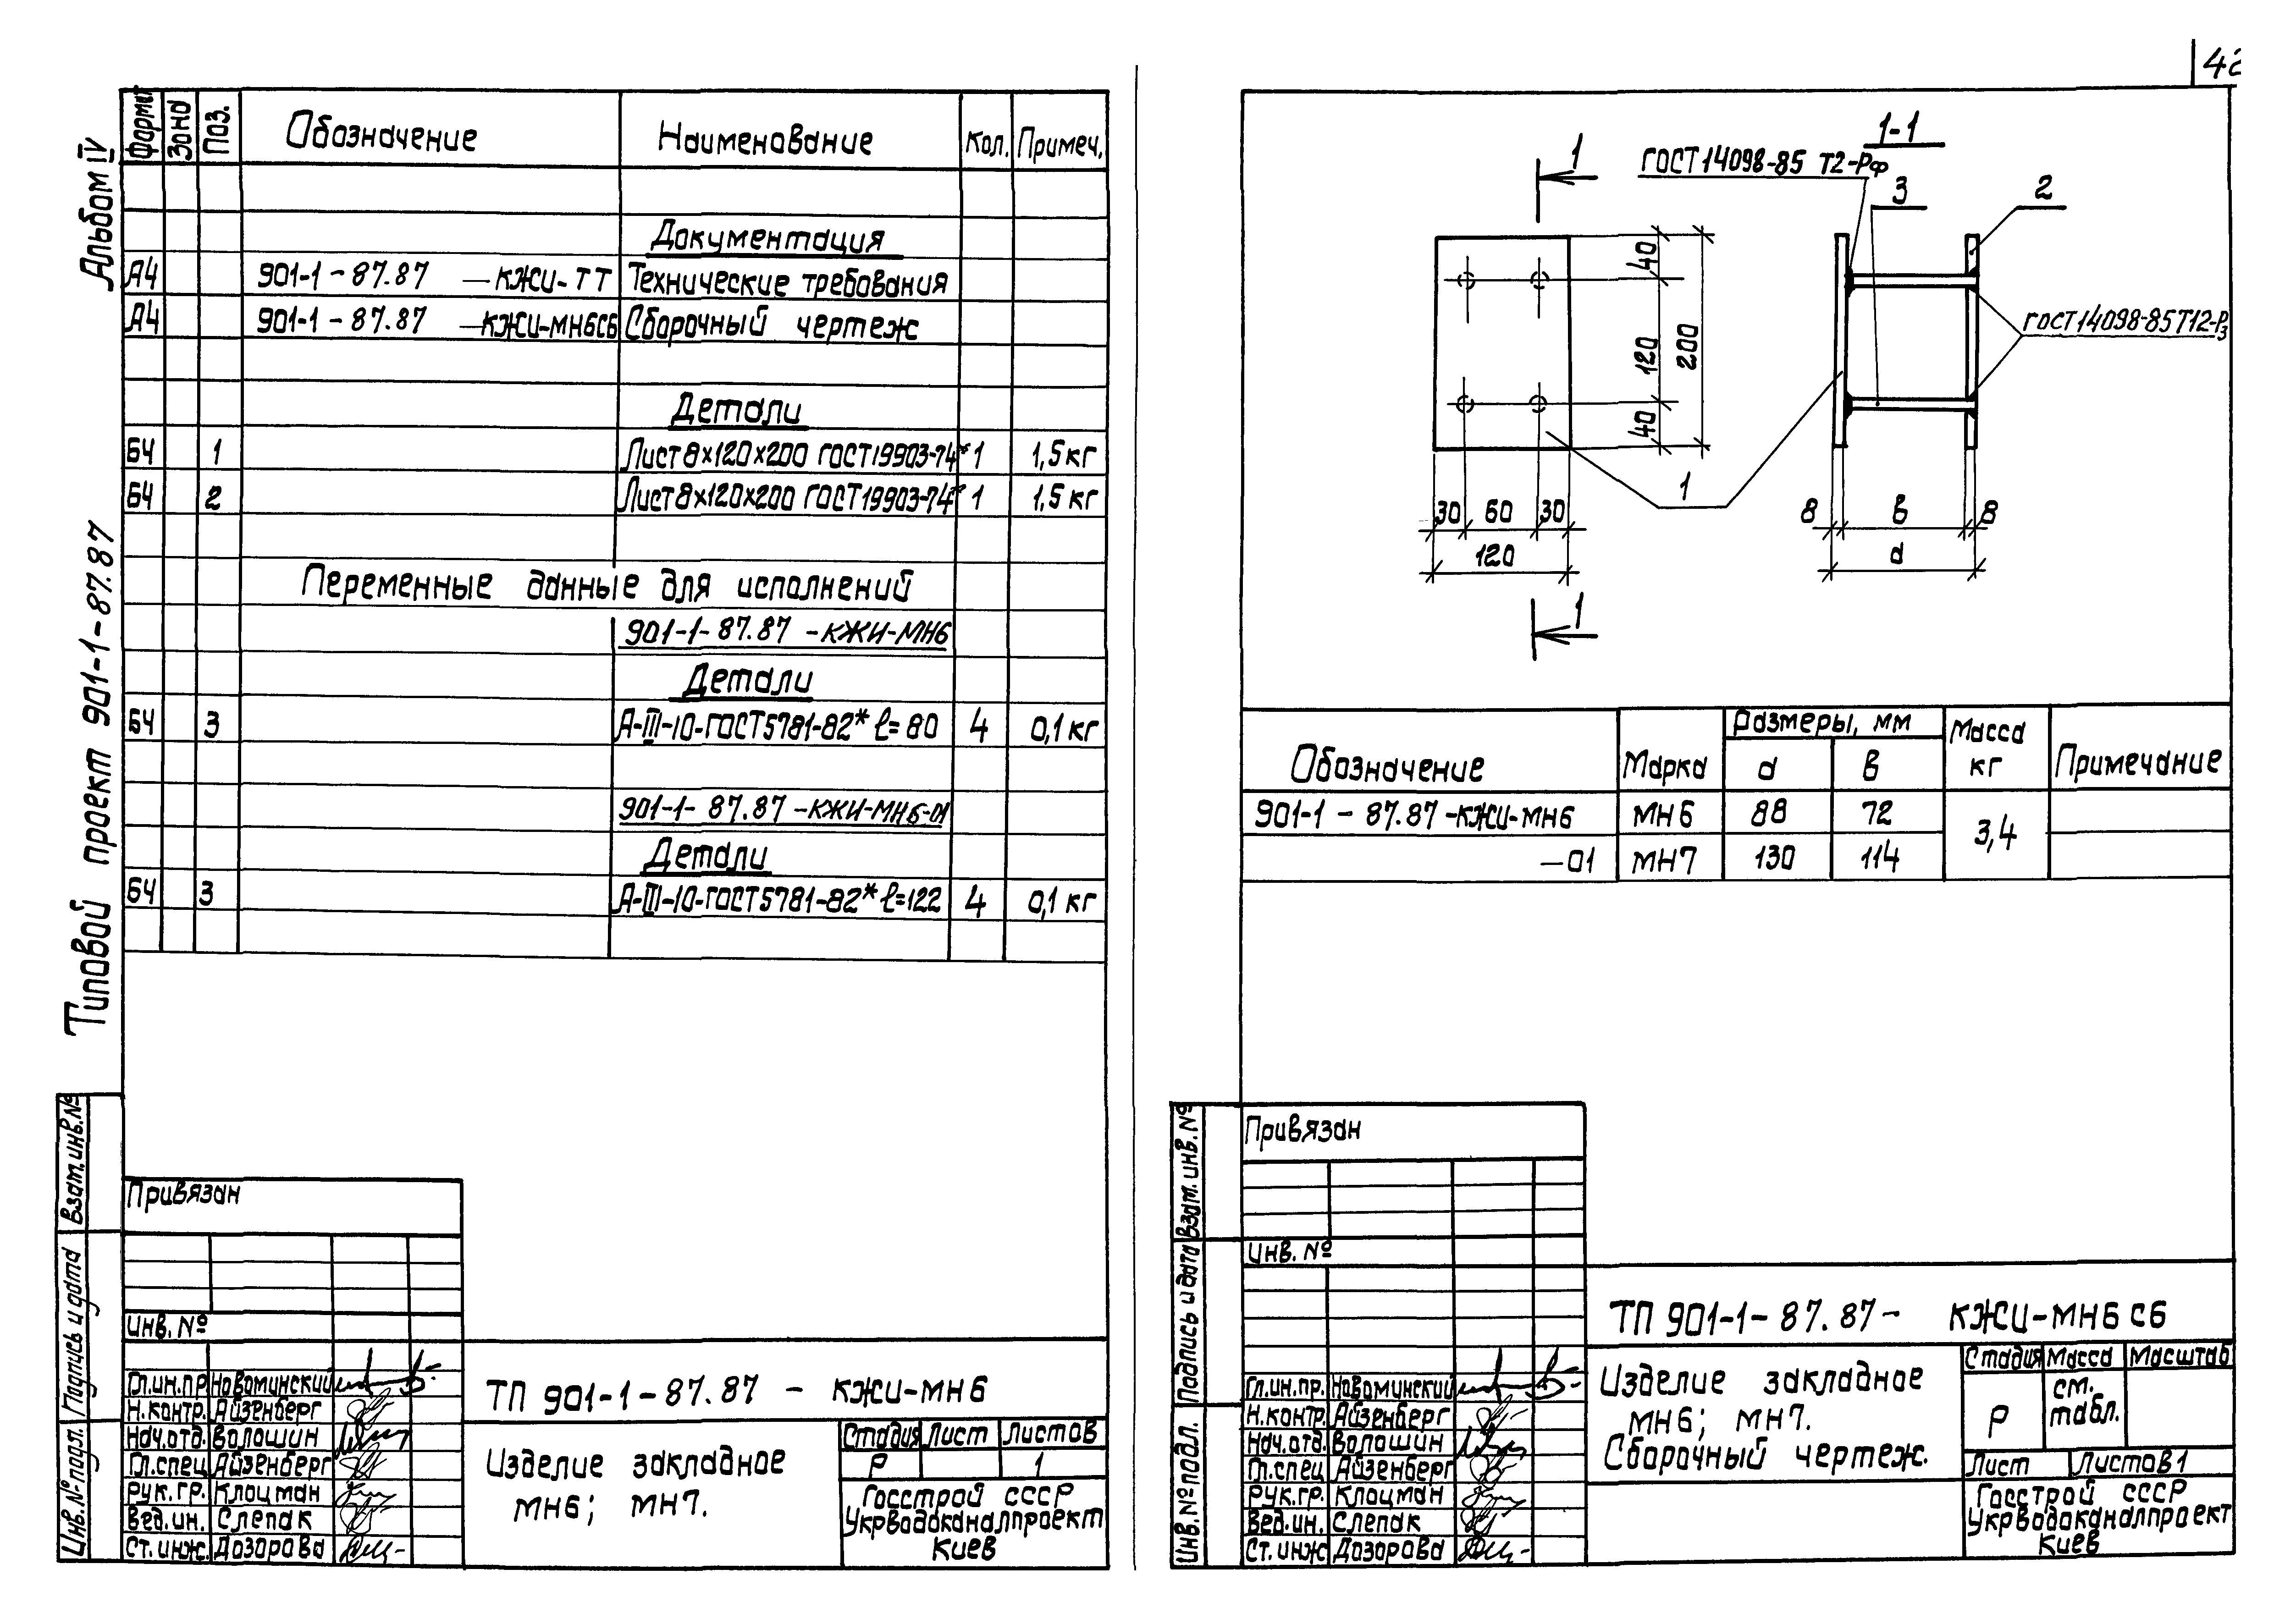 42
Альбом IV
Типовой проект 901-1-87.87
Формат Зона Поз. Обозначение Наименование Кол. Примеч.
Документация
А4 901-1-87.87 -КЖИ-ТТ Технические требования
А4 901-1-87.87 -КЖИ-МН6СБ Сборочный чертеж
Детали
БЧ 1 Лист 8×120×200 ГОСТ19903-74* 1 1,5кг
БЧ 2 Лист 8×120×200 ГОСТ19903-74* 1 1,5кг
Переменные данные для исполнений
901-1-87.87 -КЖИ-МН6
Детали
БЧ 3 А-III-10-ГОСТ5781-82* ℓ=80 4 0,1кг
901-1-87.87-КЖИ-МН6-01
Детали
БЧ 3 А-III-10-ГОСТ5781-82* ℓ=122 4 0,1кг
Взам.инв.№
Подпись и дата
Инв.№ подл.
Привязан
Инв. №
Гл.ин.пр Новоминский
Н.контр. Айзенберг
Нач.отд. Волошин
Гл.спец Айзенберг
Рук.гр. Клоцман
Вед.ин. Слепак
Ст.инж. Дозорова
ТП 901-1-87.87 - КЖИ-МН6
Изделие закладное
МН6; МН7.
Стадия Лист Листов
Р 1
Госстрой СССР
Укрводоканалпроект
Киев
1-1
1
ГОСТ14098-85 Т2-Рф
3
2
40
120
200
40
ГОСТ14098-85Т12-Рз
1
30 60 30
120
8 в 8
d
1
Обозначение Марка Размеры, мм Масса кг Примечание
d в
901-1-87.87-КЖИ-МН6 МН6 88 72 3,4
-01 МН7 130 114
Взам.инв.№
Подпись и дата
Инв.№ подл.
Привязан
Инв. №
Гл.ин.пр. Новоминский
Н.контр. Айзенберг
Нач.отд. Волошин
Гл.спец Айзенберг
Рук.гр. Клоцман
Вед.ин. Слепак
Ст.инж Дозорова
ТП 901-1-87.87- КЖИ-МН6 СБ
Изделие закладное
МН6; МН7.
Сборочный чертеж.
Стадия Масса Масштаб
Р см. табл.
Лист Листов 1
Госстрой СССР
Укрводоканалпроект
Киев